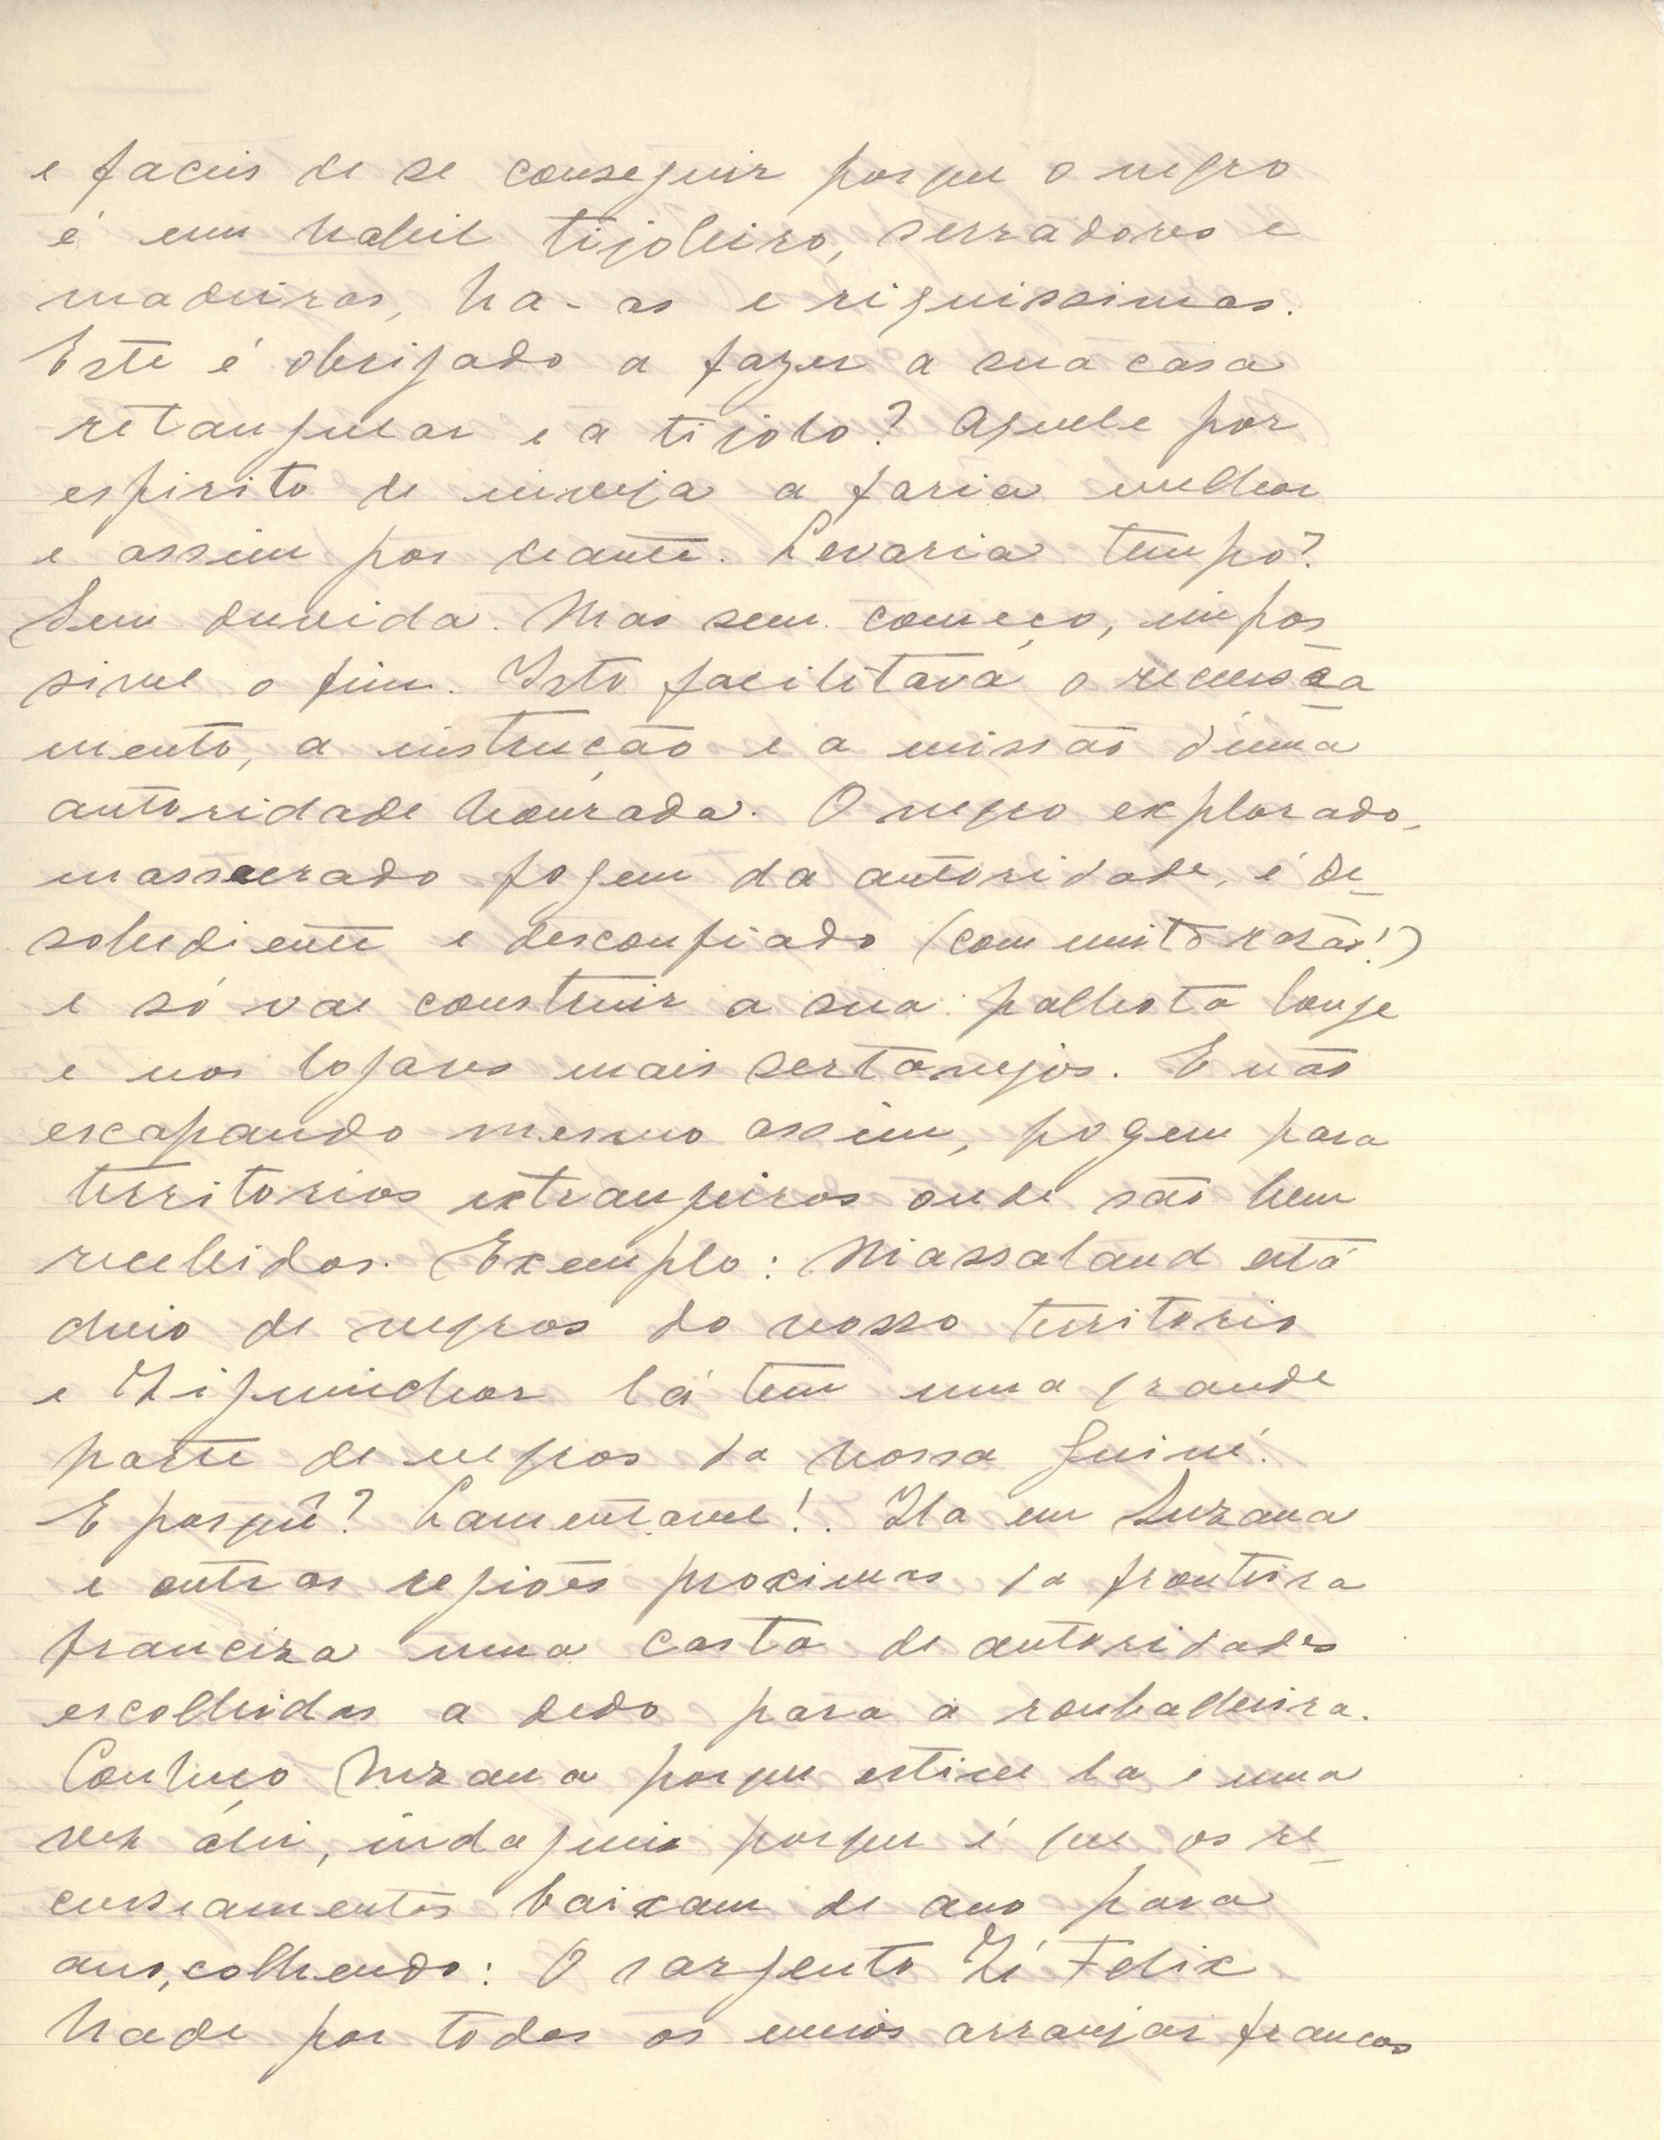 e faceis de se conseguir porque o negro
é um habil tijoleiro, serradores e
madeiras, ha-as e riquissimas.
Este é obrigado a fazer a sua casa
retangular e a tijolo? Aquele por
espirito de inveja a faria melhor
e assim por deante. Levaria tempo?
Sem duvida. Mas sem começo, impos
sivel o fim. Isto facilitava o recensea
mento, a instrução e a missão d'uma
autoridade honrada. O negro explorado,
massacrado fogem da autoridade, é de-
sobediente e desconfiado (com muito razão!)
e só vae construir a sua palhota longe
e nos logares mais sertanejos. E não
escapando mesmo assim, fogem para
territorios extrangeiros onde são bem
recebidos. Exemplo: Niassaland está
cheio de negros do nosso territorio
e Ziguinchor lá tem uma grande
parte de negros da nossa Guiné.
E porquê? Lamentavel!. Ha em Suzana
e outras regiões proximas da fronteira
franceza uma casta de autoridades
escolhidas a dedo para a roubalheira.
Conheço Suzana porque estive la e uma
vez ali, indaguei porque é que os re-
censeamentos baixam de ano para
ano, colhendo: O sargento Zé Felix
hade por todos os meios arranjar francos